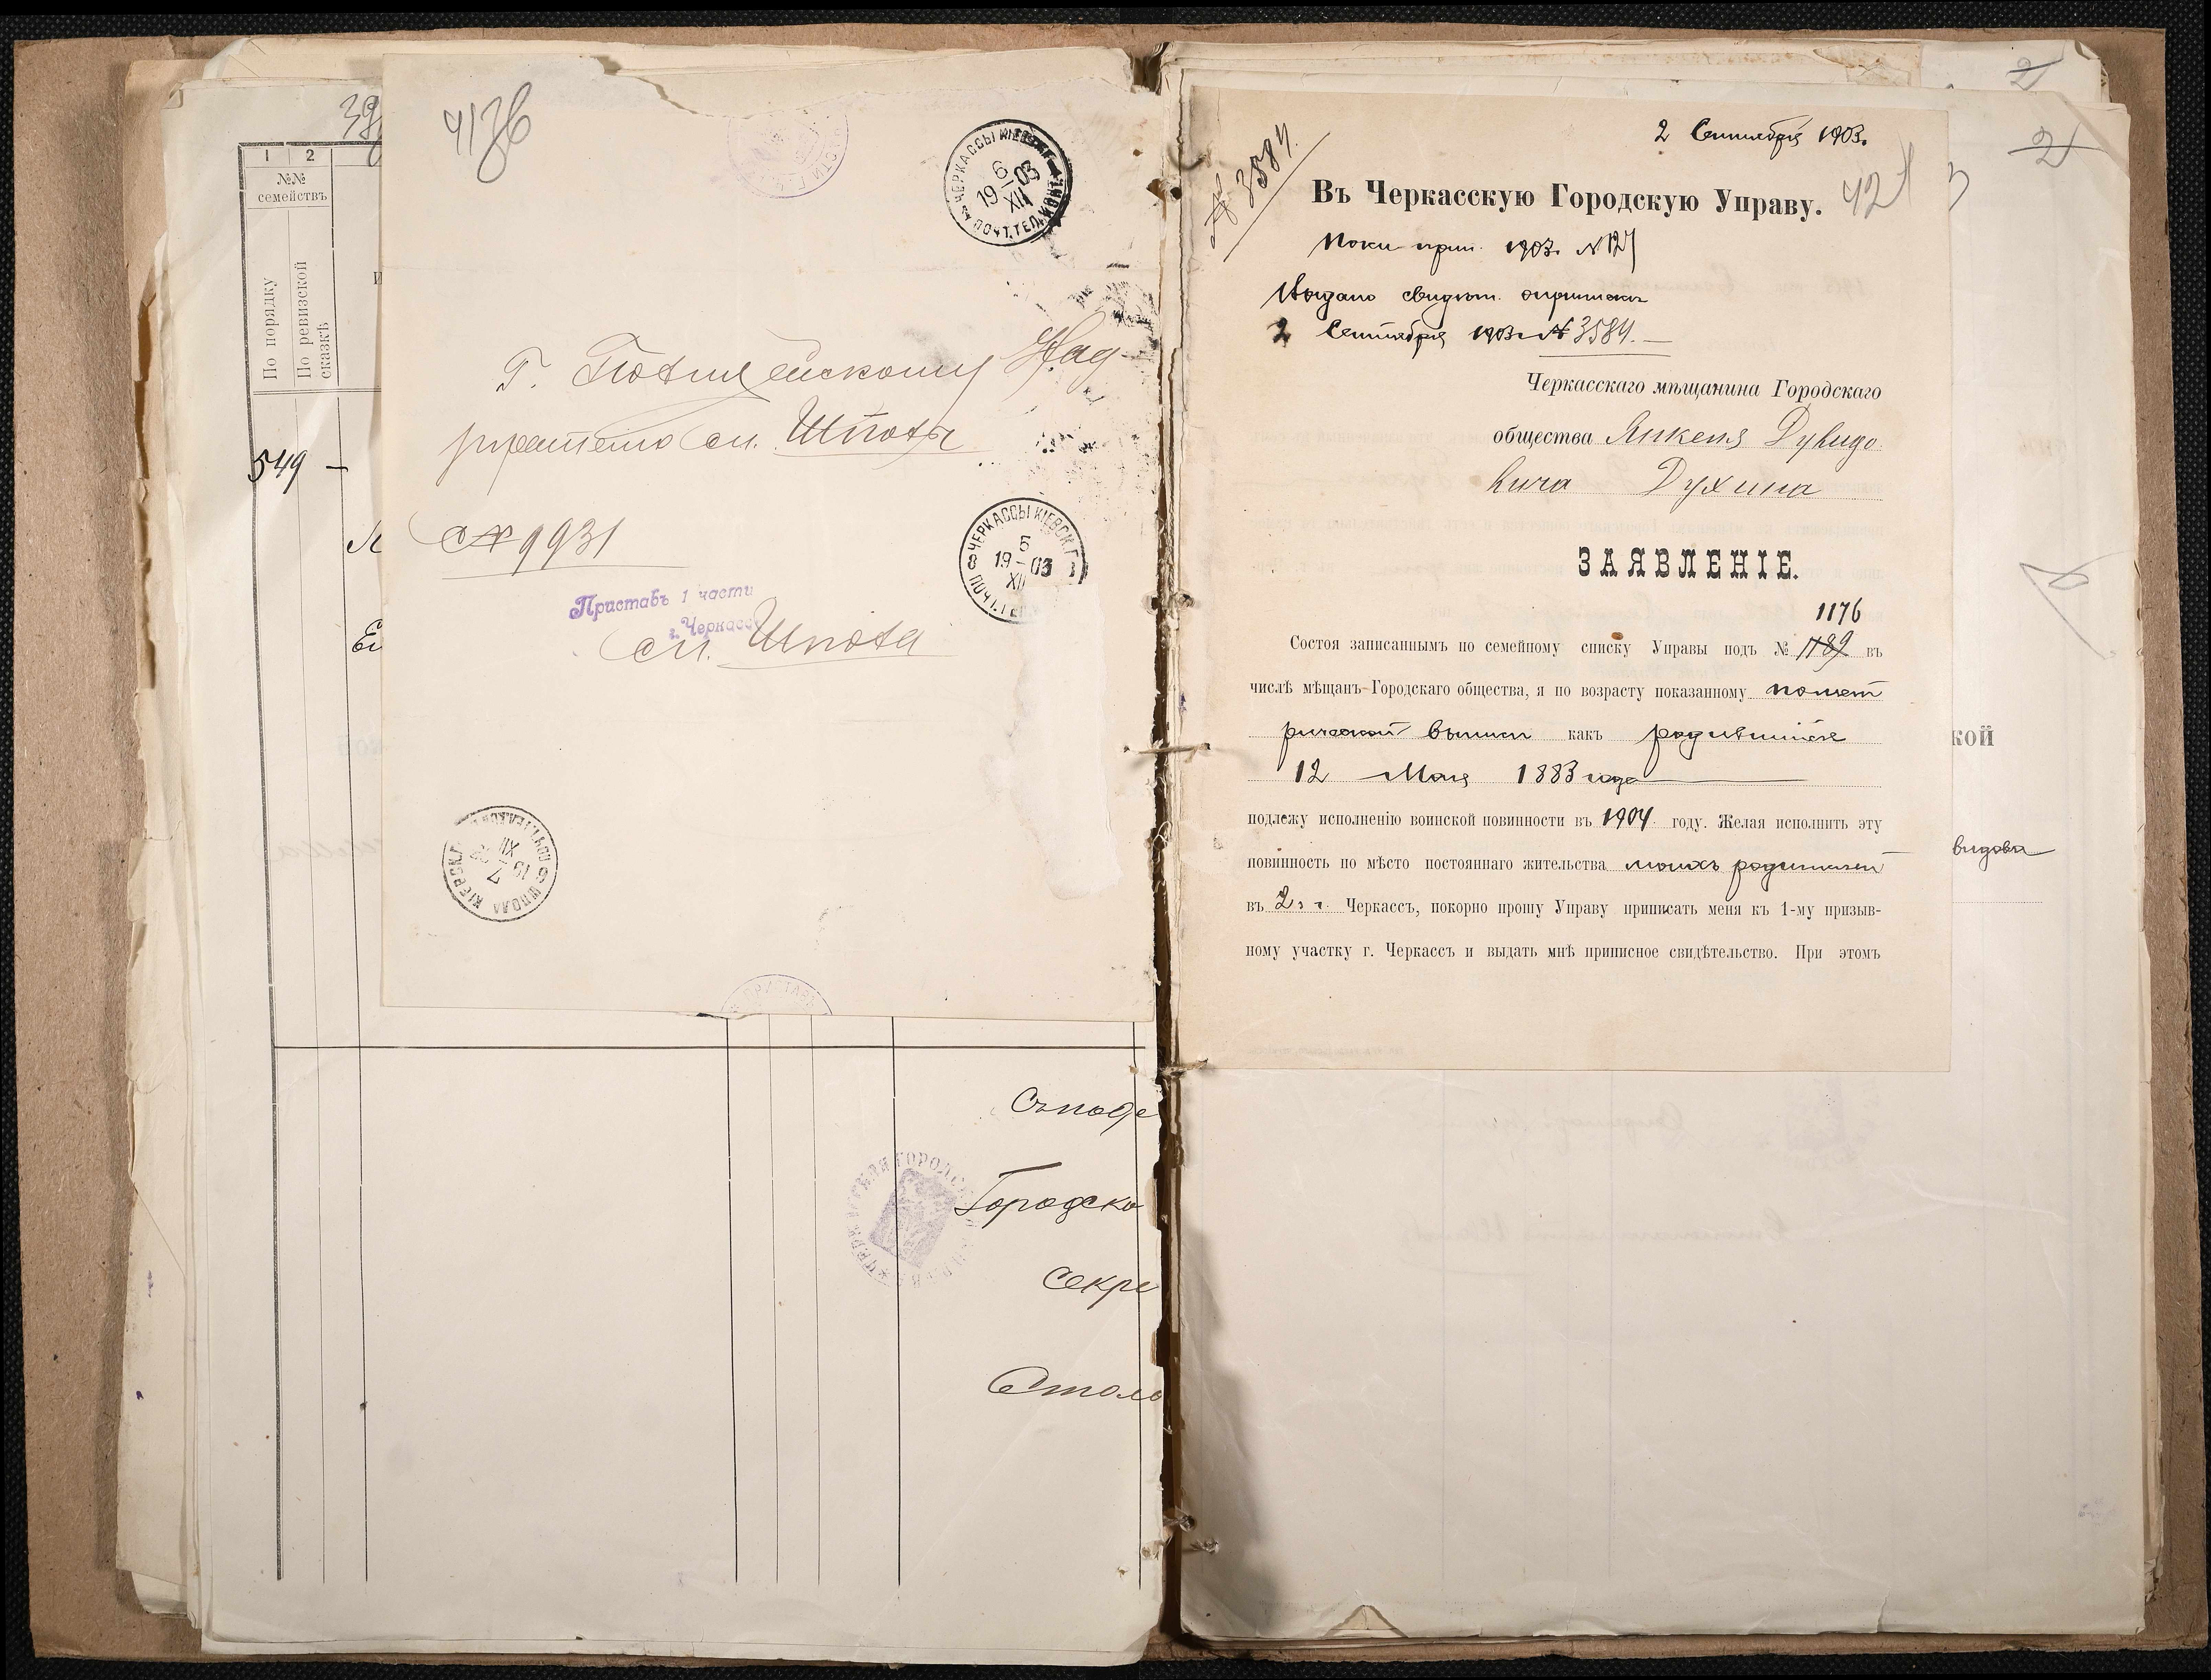 1 2
№№
семействъ
По порядку
По ревизской
сказкѣ
549 —
413б
ЧЕРКАССЫ КІЕВСК. Г.
6
19–03
XII
ПОЧТ. ТЕЛ. КОНТ.
Г. Полицейскому Над-
зирателю м. Шполы
№ 9931
ЧЕРКАССЫ КІЕВСК. Г.
6
19–03
XII
Приставъ 1 части
г. Черкассъ
м. Шпола
ШПОЛА КІЕВСК. Г.
7
XII
ПРИСТАВЪ
Съподе
Городско
Секре
Столо
2 Сентября 1903.
№ 3584.
Въ Черкасскую Городскую Управу.
421
3
2
2
1903. № 121
Выдано свидѣт. о припискѣ
2 Сентября 1903 № 3584.
Черкасскаго мѣщанина Городскаго
общества Янкеля Дувидо-
вича Духина
ЗАЯВЛЕНІЕ.
1176
Состоя записаннымъ по семейному списку Управы подъ № 1189 въ
числѣ мѣщанъ Городскаго общества, я по возрасту показанному по мет
рической выписи какъ родившійся
12 Мая 1883 года
подлежу исполненію воинской повинности въ 1904 году. Желая исполнить эту
повинность по мѣсто постояннаго жительства моихъ родителей
въ г. Черкассъ, покорно прошу Управу приписать меня къ 1-му призыв-
ному участку г. Черкассъ и выдать мнѣ приписное свидѣтельство. При этомъ
кой
видова